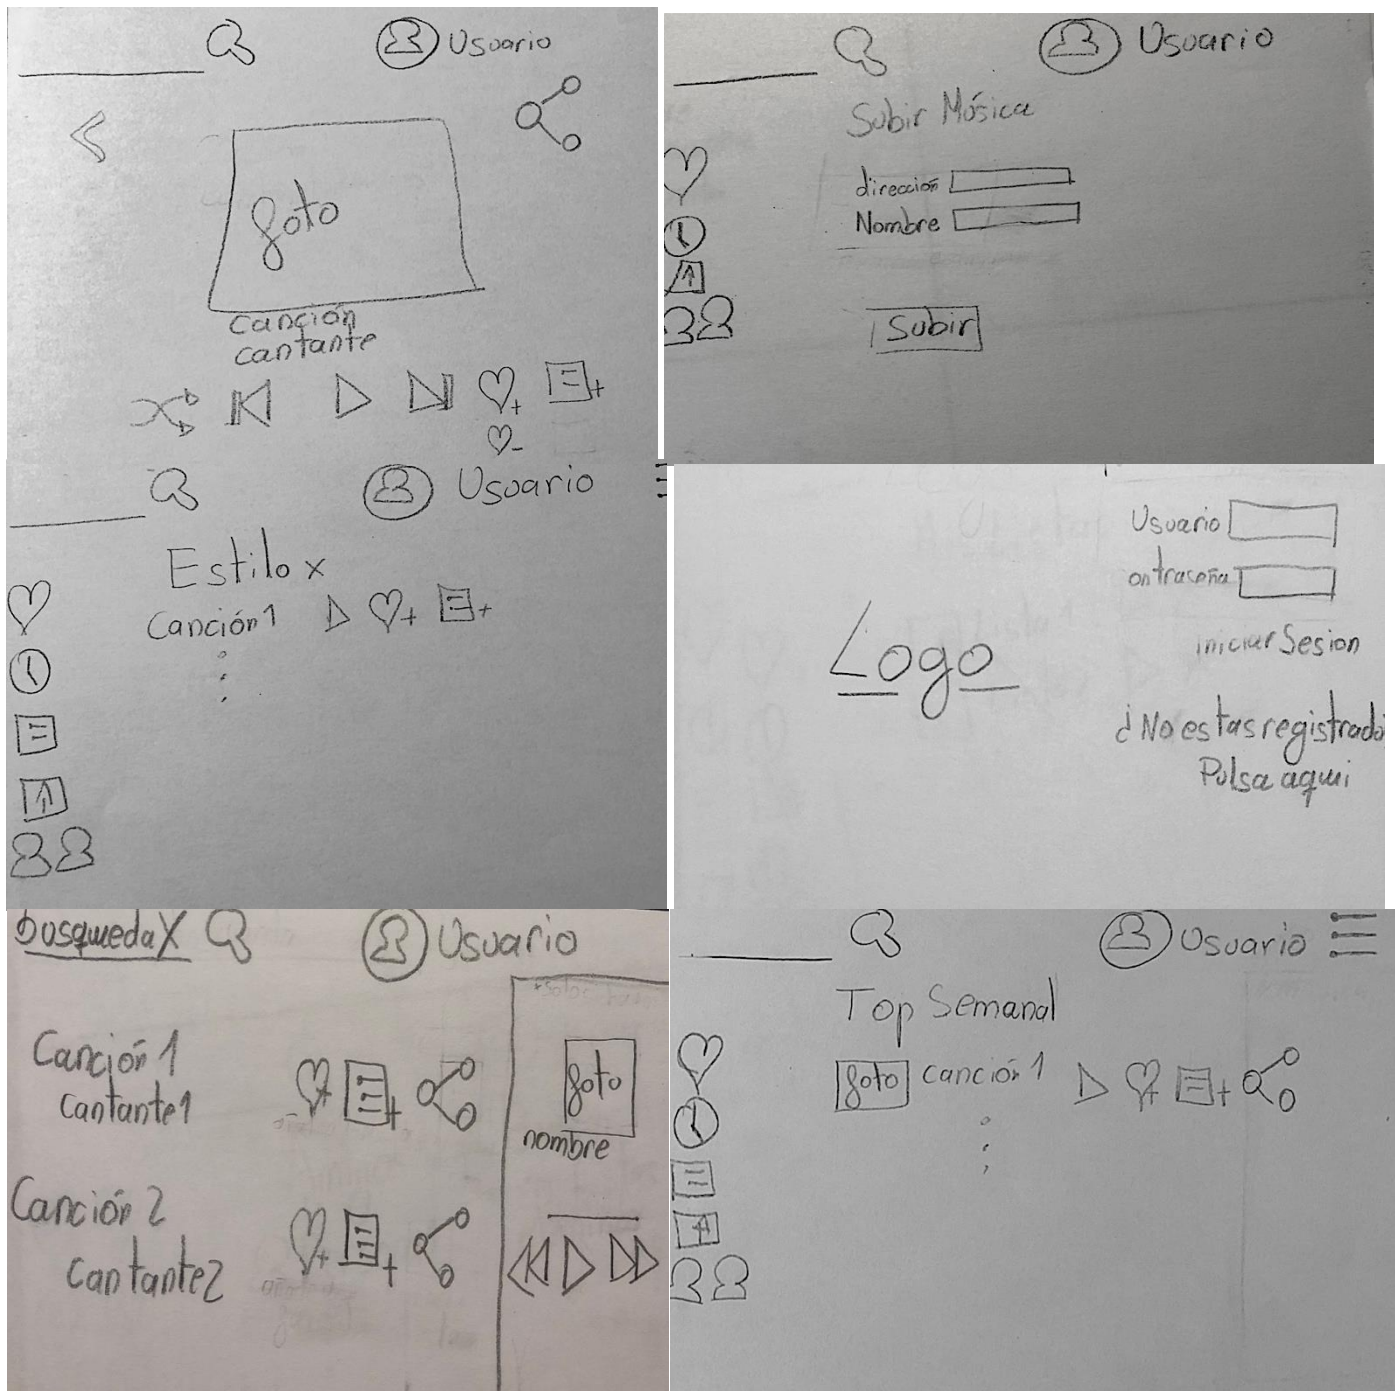 Usuario
foto
canción
cantante
Usuario
Subir Música
dirección
Nombre
Subir
Usuario
Estilo x
Canción 1
Usuario
ontraseña
iniciar Sesion
Logo
¿No estas registrado
Pulsa aqui
busqueda X
Usuario
Canción 1
Cantante 1
foto
nombre
Canción 2
Cantante 2
Usuario
Top Semanal
foto canción 1